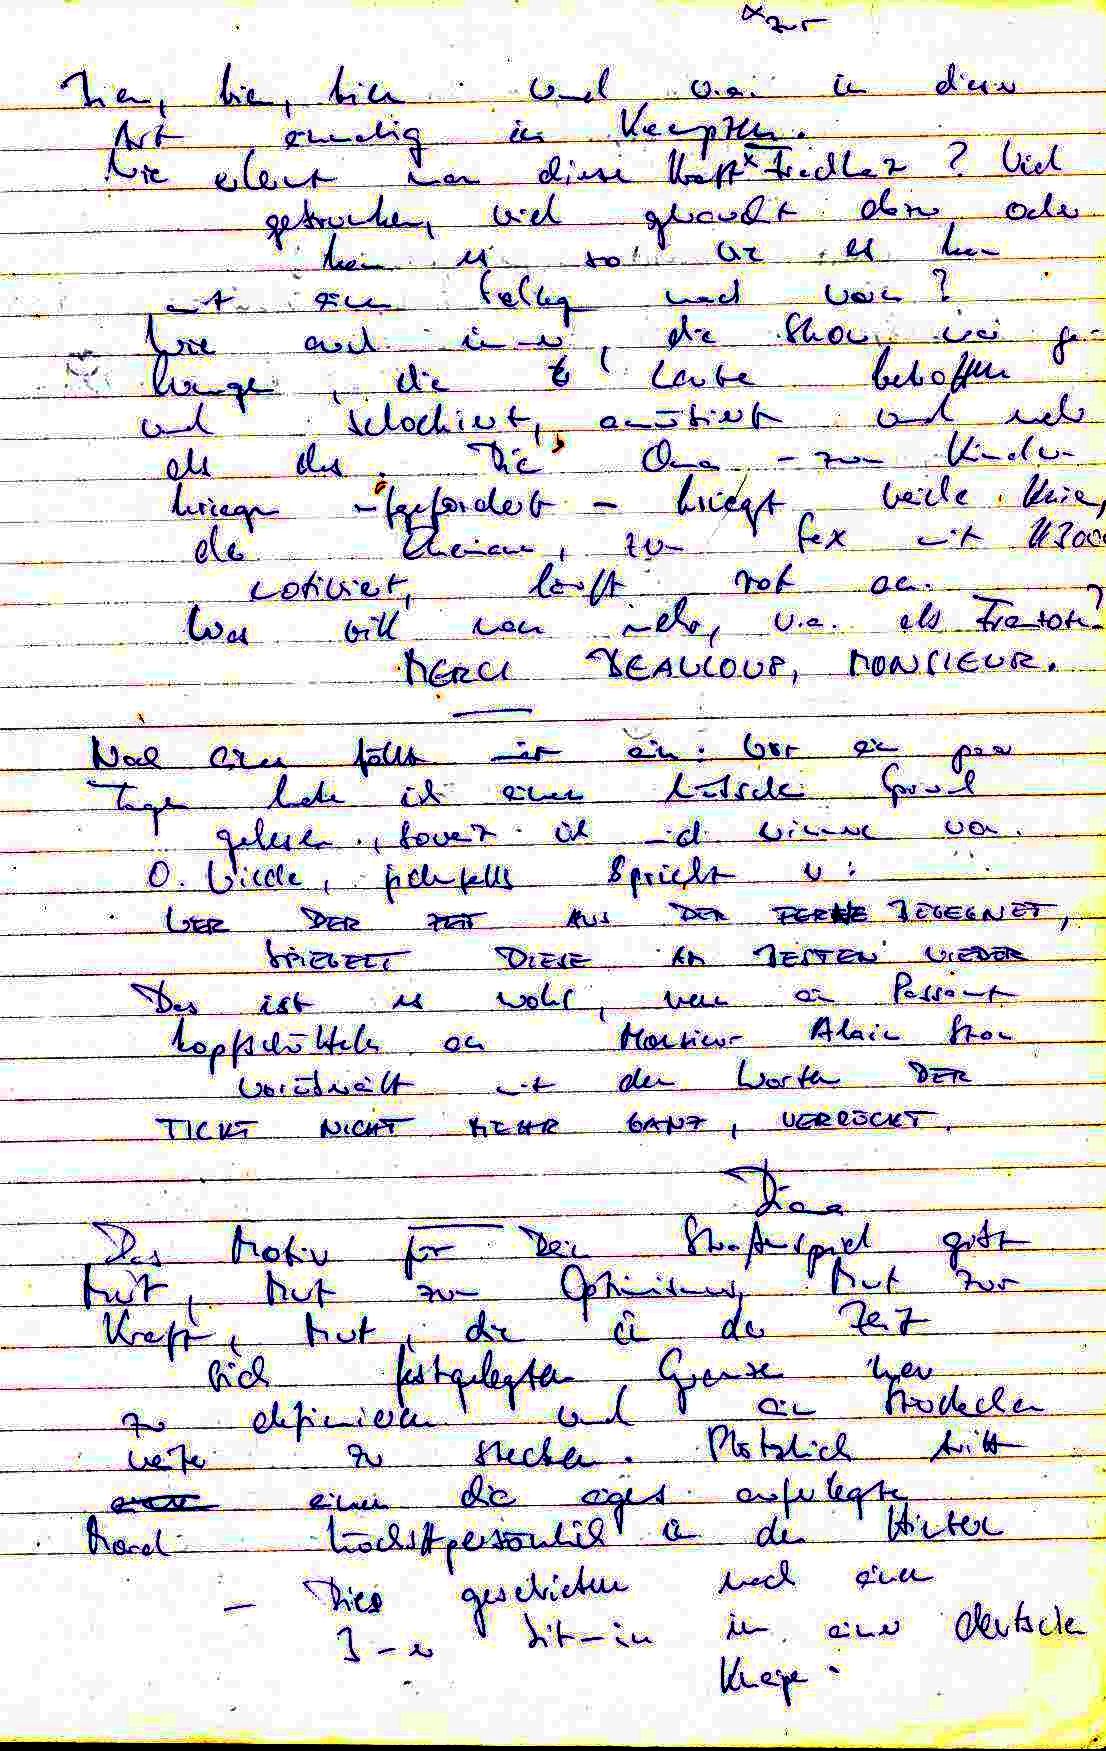 × zur
hier, hier, hier und war in dieser
Art einmalig in Kempten.
Wie erlernt man diese Kraft × Frechheit ? Viel
getrunken, viel geraucht dazu oder
kam es so wie es kam
mit einem
Wie auch immer, die Show war ge-
lungen, die Leute betroffen
und schockiert, amüsiert und mehr
als das. Die Oma - zum Kinder-
kriegen aufgefordert - kriegt weiche Knie,
der zum Sex mit
motiviert, läuft rot an.
Was will man mehr, als
MERCI BEAUCOUP, MONSIEUR.
Noch eines fällt mir ein: Vor ein paar
Tagen habe ich einen hübschen Spruch
gelesen, soweit ich mich erinnere von
O. Wilde, jedenfalls spricht er:
WER DER ZEIT AUS DER FERNE BEGEGNET,
SPIEGELT DIESE AM BESTEN WIEDER
Das ist es wohl, wenn ein Passant
kopfschüttelnd an Monsieur Alain Show
mit den Worten DER
TICKT NICHT MEHR GANZ, VERRÜCKT.
Diana
Das Motiv für Dein Straßenspiel gibt
Mut, Mut zum Optimismus, Mut zur
Kraft, Mut, die in der Zeit
sich festgelegten Grenzen neu
zu definieren und ein Stückchen
weiter zu stecken. Plötzlich tritt
einen die eigens auferlegte
Moral höchstpersönlich in den Hintern
- Dies geschrieben nach einem
Sit-in in einer deutschen
Kneipe.